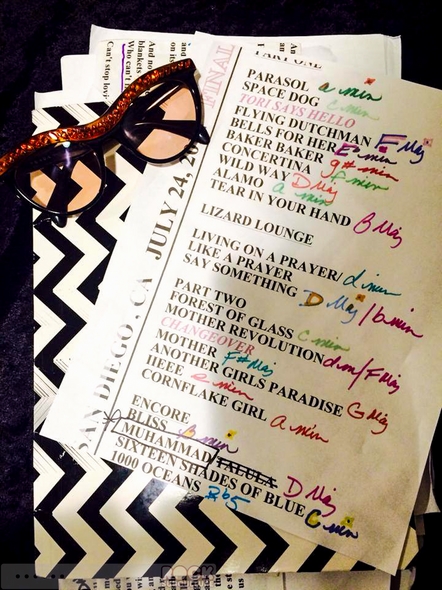 And no
blankets
Who can't
Can't stop lovi
FINAL
PART ONE
SAN DIEGO, CA JULY 24, 20
PARASOL a min
SPACE DOG C min
TORI SAYS HELLO
FLYING DUTCHMAN F Maj
BELLS FOR HER E♭ min
BAKER BAKER g# min
CONCERTINA f min
WILD WAY D Maj
ALAMO a min
TEAR IN YOUR HAND B Maj
LIZARD LOUNGE
LIVING ON A PRAYER/ d min
LIKE A PRAYER
SAY SOMETHING D Maj/b min
PART TWO
FOREST OF GLASS C min
MOTHER REVOLUTION dm/F Maj
CHANGEOVER
MOTHER F# Maj
ANOTHER GIRLS PARADISE G Maj
IIEEE e min
CORNFLAKE GIRL a min
ENCORE
BLISS min
MUHAMMAD/TALULA D Maj
SIXTEEN SHADES OF BLUE C min
1000 OCEANS
ROCK